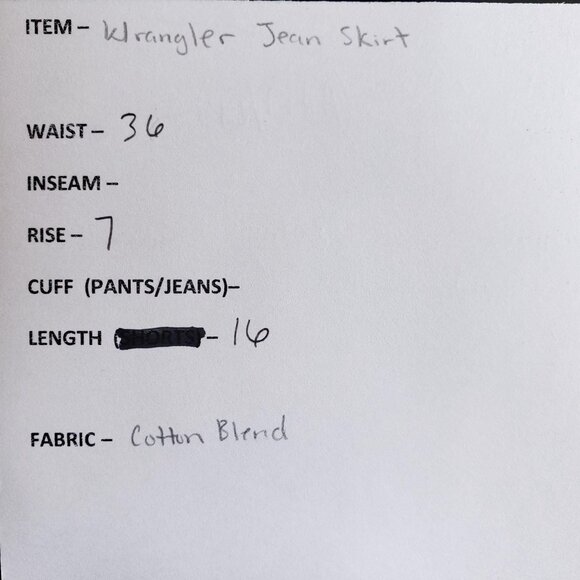 ITEM – Wrangler Jean Skirt
WAIST – 36
INSEAM –
RISE – 7
CUFF (PANTS/JEANS)–
LENGTH (SHORTS) – 16
FABRIC – Cotton Blend